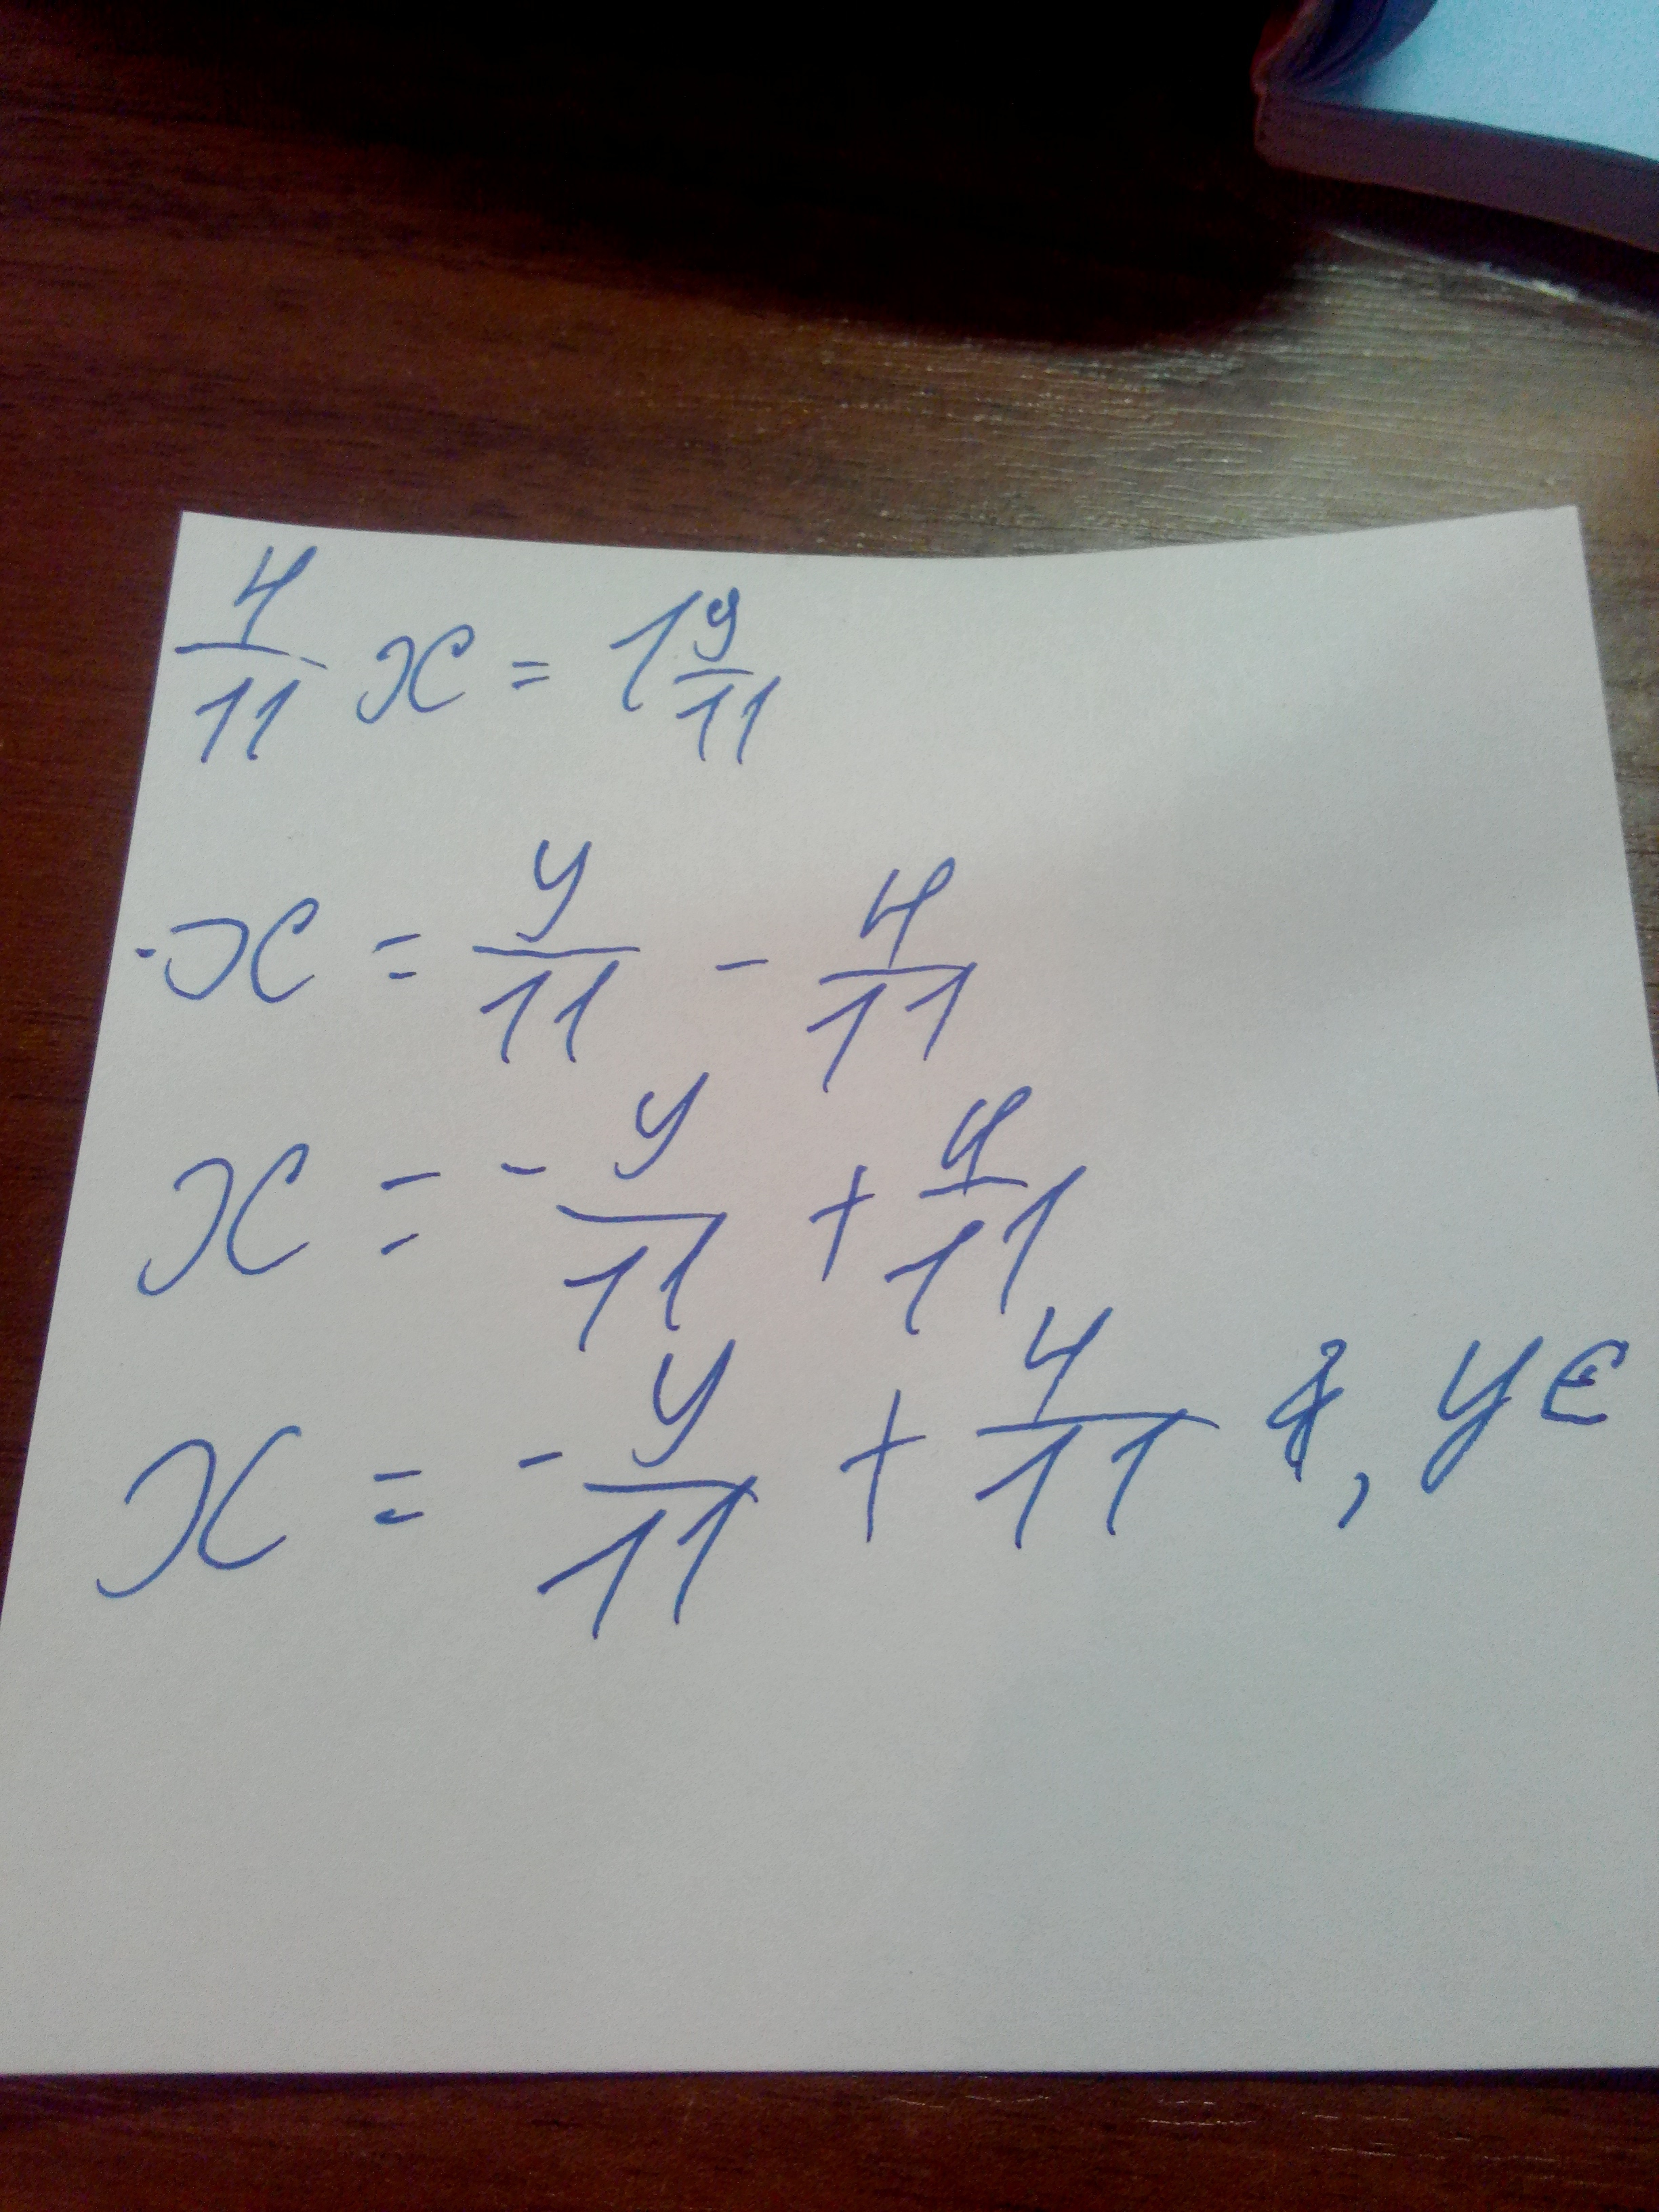 4/11 x = 1 9/11
-x = y/11 - 4/11
x = - y/11 + 4/11
x = - y/11 + 4/11 , y ∈